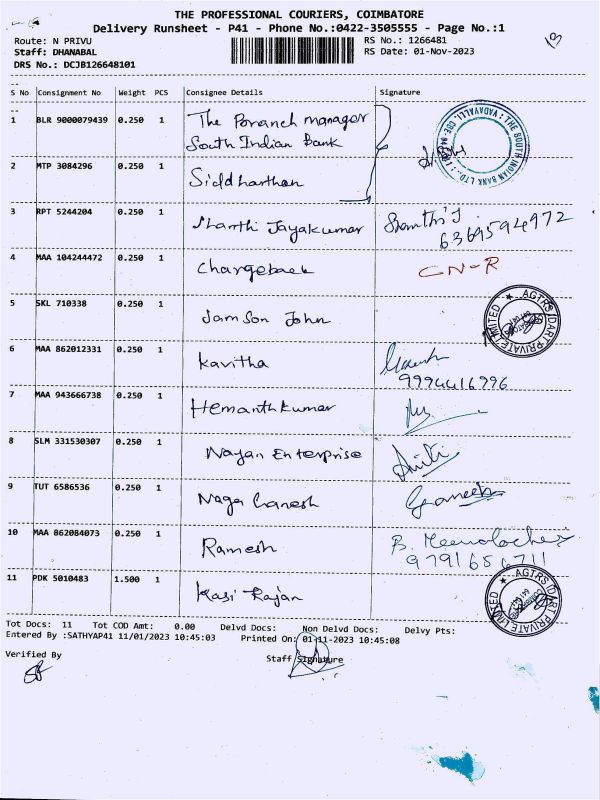 THE PROFESSIONAL COURIERS, COIMBATORE
Delivery Runsheet - P41 - Phone No.:0422-3505555 - Page No.:1
Route: N PRIVU RS No.: 1266481
Staff: DHANABAL RS Date: 01-Nov-2023
DRS No.: DCJB126648101
13
S No Consignment No Weight PCS Consignee Details Signature
1 BLR 9000079439 0.250 1 The Branch manager
South Indian Bank
THE SOUTH INDIAN BANK LTD., VADAVALLI, CBE
2 MTP 3084296 0.250 1 Siddharthan
3 RPT 5244204 0.250 1 Shanthi Jayakumar Shanthi J
6369594972
4 MAA 104244472 0.250 1 Chargeback CN-R
5 SKL 710338 0.250 1 Jamson John
AGTRS IDART PRIVATE LIMITED
6 MAA 862012331 0.250 1 Kavitha
9994416996
7 MAA 943666738 0.250 1 Hemanthkumar
8 SLM 331530307 0.250 1 Nayan Enterprise
9 TUT 6586536 0.250 1 Naga Ganesh Ganesh
10 MAA 862084073 0.250 1 Ramesh B. Meenalochni
9791656711
11 PDK 5010483 1.500 1 Kasi Rajan
AGTRS IDART PRIVATE LIMITED
Tot Docs: 11 Tot COD Amt: 0.00 Delvd Docs: Non Delvd Docs: Delvy Pts:
Entered By :SATHYAP41 11/01/2023 10:45:03 Printed On: 01-11-2023 10:45:08
Verified By Staff Signature